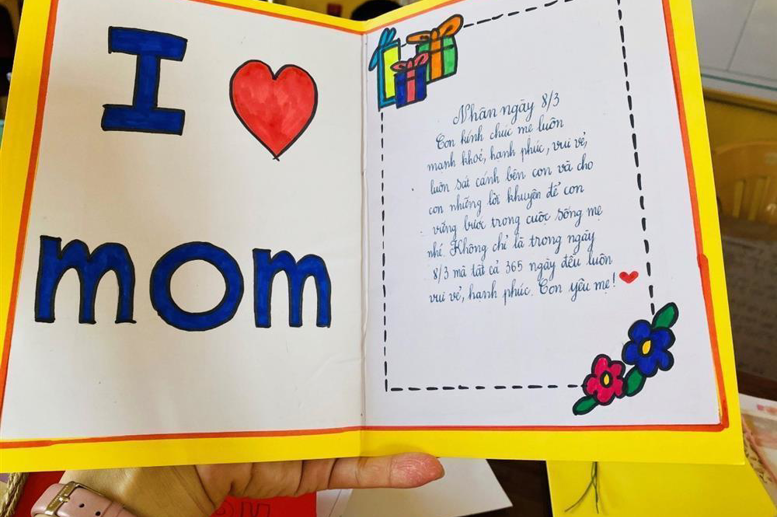 I ❤
mom
Nhân ngày 8/3
Con kính chúc mẹ luôn
mạnh khoẻ, hạnh phúc, vui vẻ,
luôn sát cánh bên con và cho
con những lời khuyên để con
vững bước trong cuộc sống mẹ
nhé. Không chỉ là trong ngày
8/3 mà tất cả 365 ngày đều luôn
vui vẻ, hạnh phúc. Con yêu mẹ! ❤